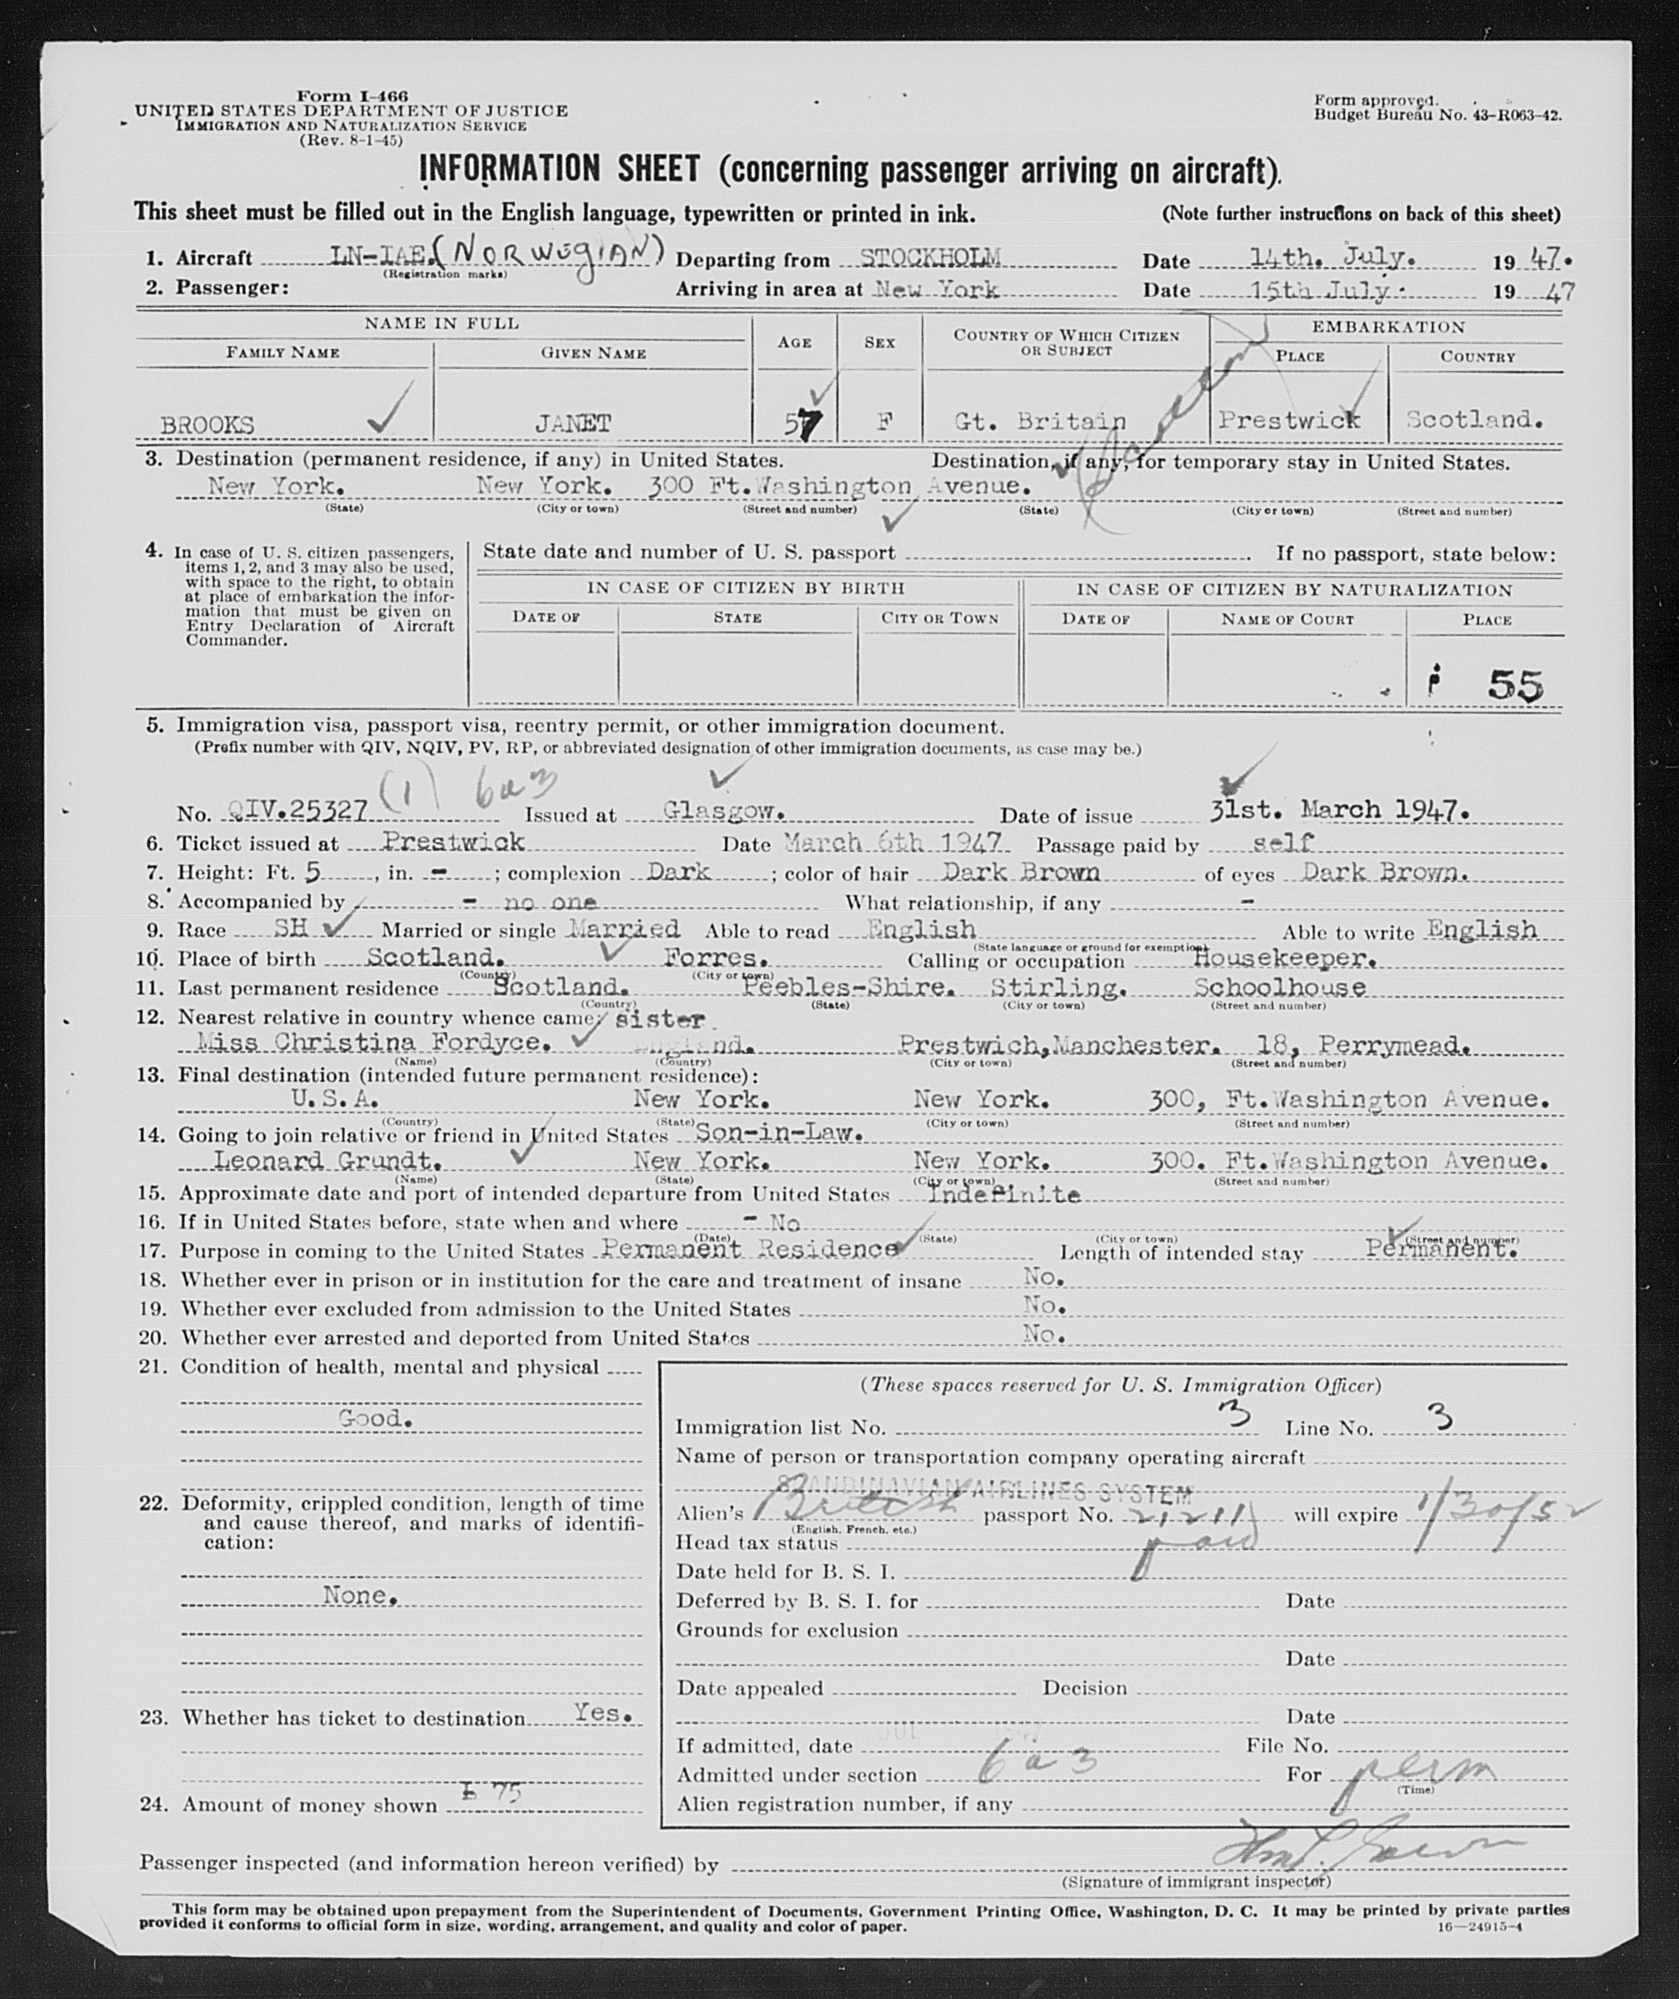 Form I-466
UNITED STATES DEPARTMENT OF JUSTICE
IMMIGRATION AND NATURALIZATION SERVICE
(Rev. 8-1-45)
Form approved.
Budget Bureau No. 43-R063-42.
INFORMATION SHEET (concerning passenger arriving on aircraft).
This sheet must be filled out in the English language, typewritten or printed in ink. (Note further instructions on back of this sheet)
1. Aircraft LN-IAE. (NORWEGIAN) Departing from STOCKHOLM Date 14th. July. 19 47.
(Registration marks)
2. Passenger: Arriving in area at New York Date 15th July. 19 47
NAME IN FULL AGE SEX COUNTRY OF WHICH CITIZEN OR SUBJECT EMBARKATION
FAMILY NAME GIVEN NAME PLACE COUNTRY
BROOKS JANET 57 F Gt. Britain Prestwick Scotland.
3. Destination (permanent residence, if any) in United States. Destination, if any, for temporary stay in United States.
New York. New York. 300 Ft.Washington Avenue.
(State) (City or town) (Street and number) (State) (City or town) (Street and number)
4. In case of U. S. citizen passengers, items 1, 2, and 3 may also be used, with space to the right, to obtain at place of embarkation the information that must be given on Entry Declaration of Aircraft Commander.
State date and number of U. S. passport If no passport, state below:
IN CASE OF CITIZEN BY BIRTH IN CASE OF CITIZEN BY NATURALIZATION
DATE OF STATE CITY OR TOWN DATE OF NAME OF COURT PLACE
55
5. Immigration visa, passport visa, reentry permit, or other immigration document.
(Prefix number with QIV, NQIV, PV, RP, or abbreviated designation of other immigration documents, as case may be.)
(1) 6a3
No. QIV.25327 Issued at Glasgow. Date of issue 31st. March 1947.
6. Ticket issued at Prestwick Date March 6th 1947 Passage paid by self
7. Height: Ft. 5, in. -; complexion Dark; color of hair Dark Brown of eyes Dark Brown.
8. Accompanied by - no one What relationship, if any -
9. Race SH Married or single Married Able to read English Able to write English
(State language or ground for exemption)
10. Place of birth Scotland. Forres. Calling or occupation Housekeeper.
(Country) (City or town)
11. Last permanent residence Scotland. Peebles-Shire. Stirling. Schoolhouse
(Country) (State) (City or town) (Street and number)
12. Nearest relative in country whence came: sister.
Miss Christina Fordyce. England. Prestwich,Manchester. 18, Perrymead.
(Name) (Country) (City or town) (Street and number)
13. Final destination (intended future permanent residence):
U.S.A. New York. New York. 300, Ft.Washington Avenue.
(Country) (State) (City or town) (Street and number)
14. Going to join relative or friend in United States Son-in-Law.
Leonard Grundt. New York. New York. 300. Ft.Washington Avenue.
(Name) (State) (City or town) (Street and number)
15. Approximate date and port of intended departure from United States Indefinite
16. If in United States before, state when and where - No
(Date) (State) (City or town) (Street and number)
17. Purpose in coming to the United States Permanent Residence Length of intended stay Permanent.
18. Whether ever in prison or in institution for the care and treatment of insane No.
19. Whether ever excluded from admission to the United States No.
20. Whether ever arrested and deported from United States No.
21. Condition of health, mental and physical
Good.
22. Deformity, crippled condition, length of time and cause thereof, and marks of identification:
None.
23. Whether has ticket to destination Yes.
24. Amount of money shown £ 75
(These spaces reserved for U. S. Immigration Officer)
Immigration list No. 3 Line No. 3
Name of person or transportation company operating aircraft
SCANDINAVIAN AIRLINES SYSTEM
Alien's British passport No. will expire 1/30/52
(English, French, etc.)
Head tax status paid
Date held for B. S. I.
Deferred by B. S. I. for Date
Grounds for exclusion
Date
Date appealed Decision
Date
If admitted, date File No.
Admitted under section 6a3 For perm
(Time)
Alien registration number, if any
Passenger inspected (and information hereon verified) by
(Signature of immigrant inspector)
This form may be obtained upon prepayment from the Superintendent of Documents, Government Printing Office, Washington, D. C. It may be printed by private parties
provided it conforms to official form in size, wording, arrangement, and quality and color of paper. 16—24915-4